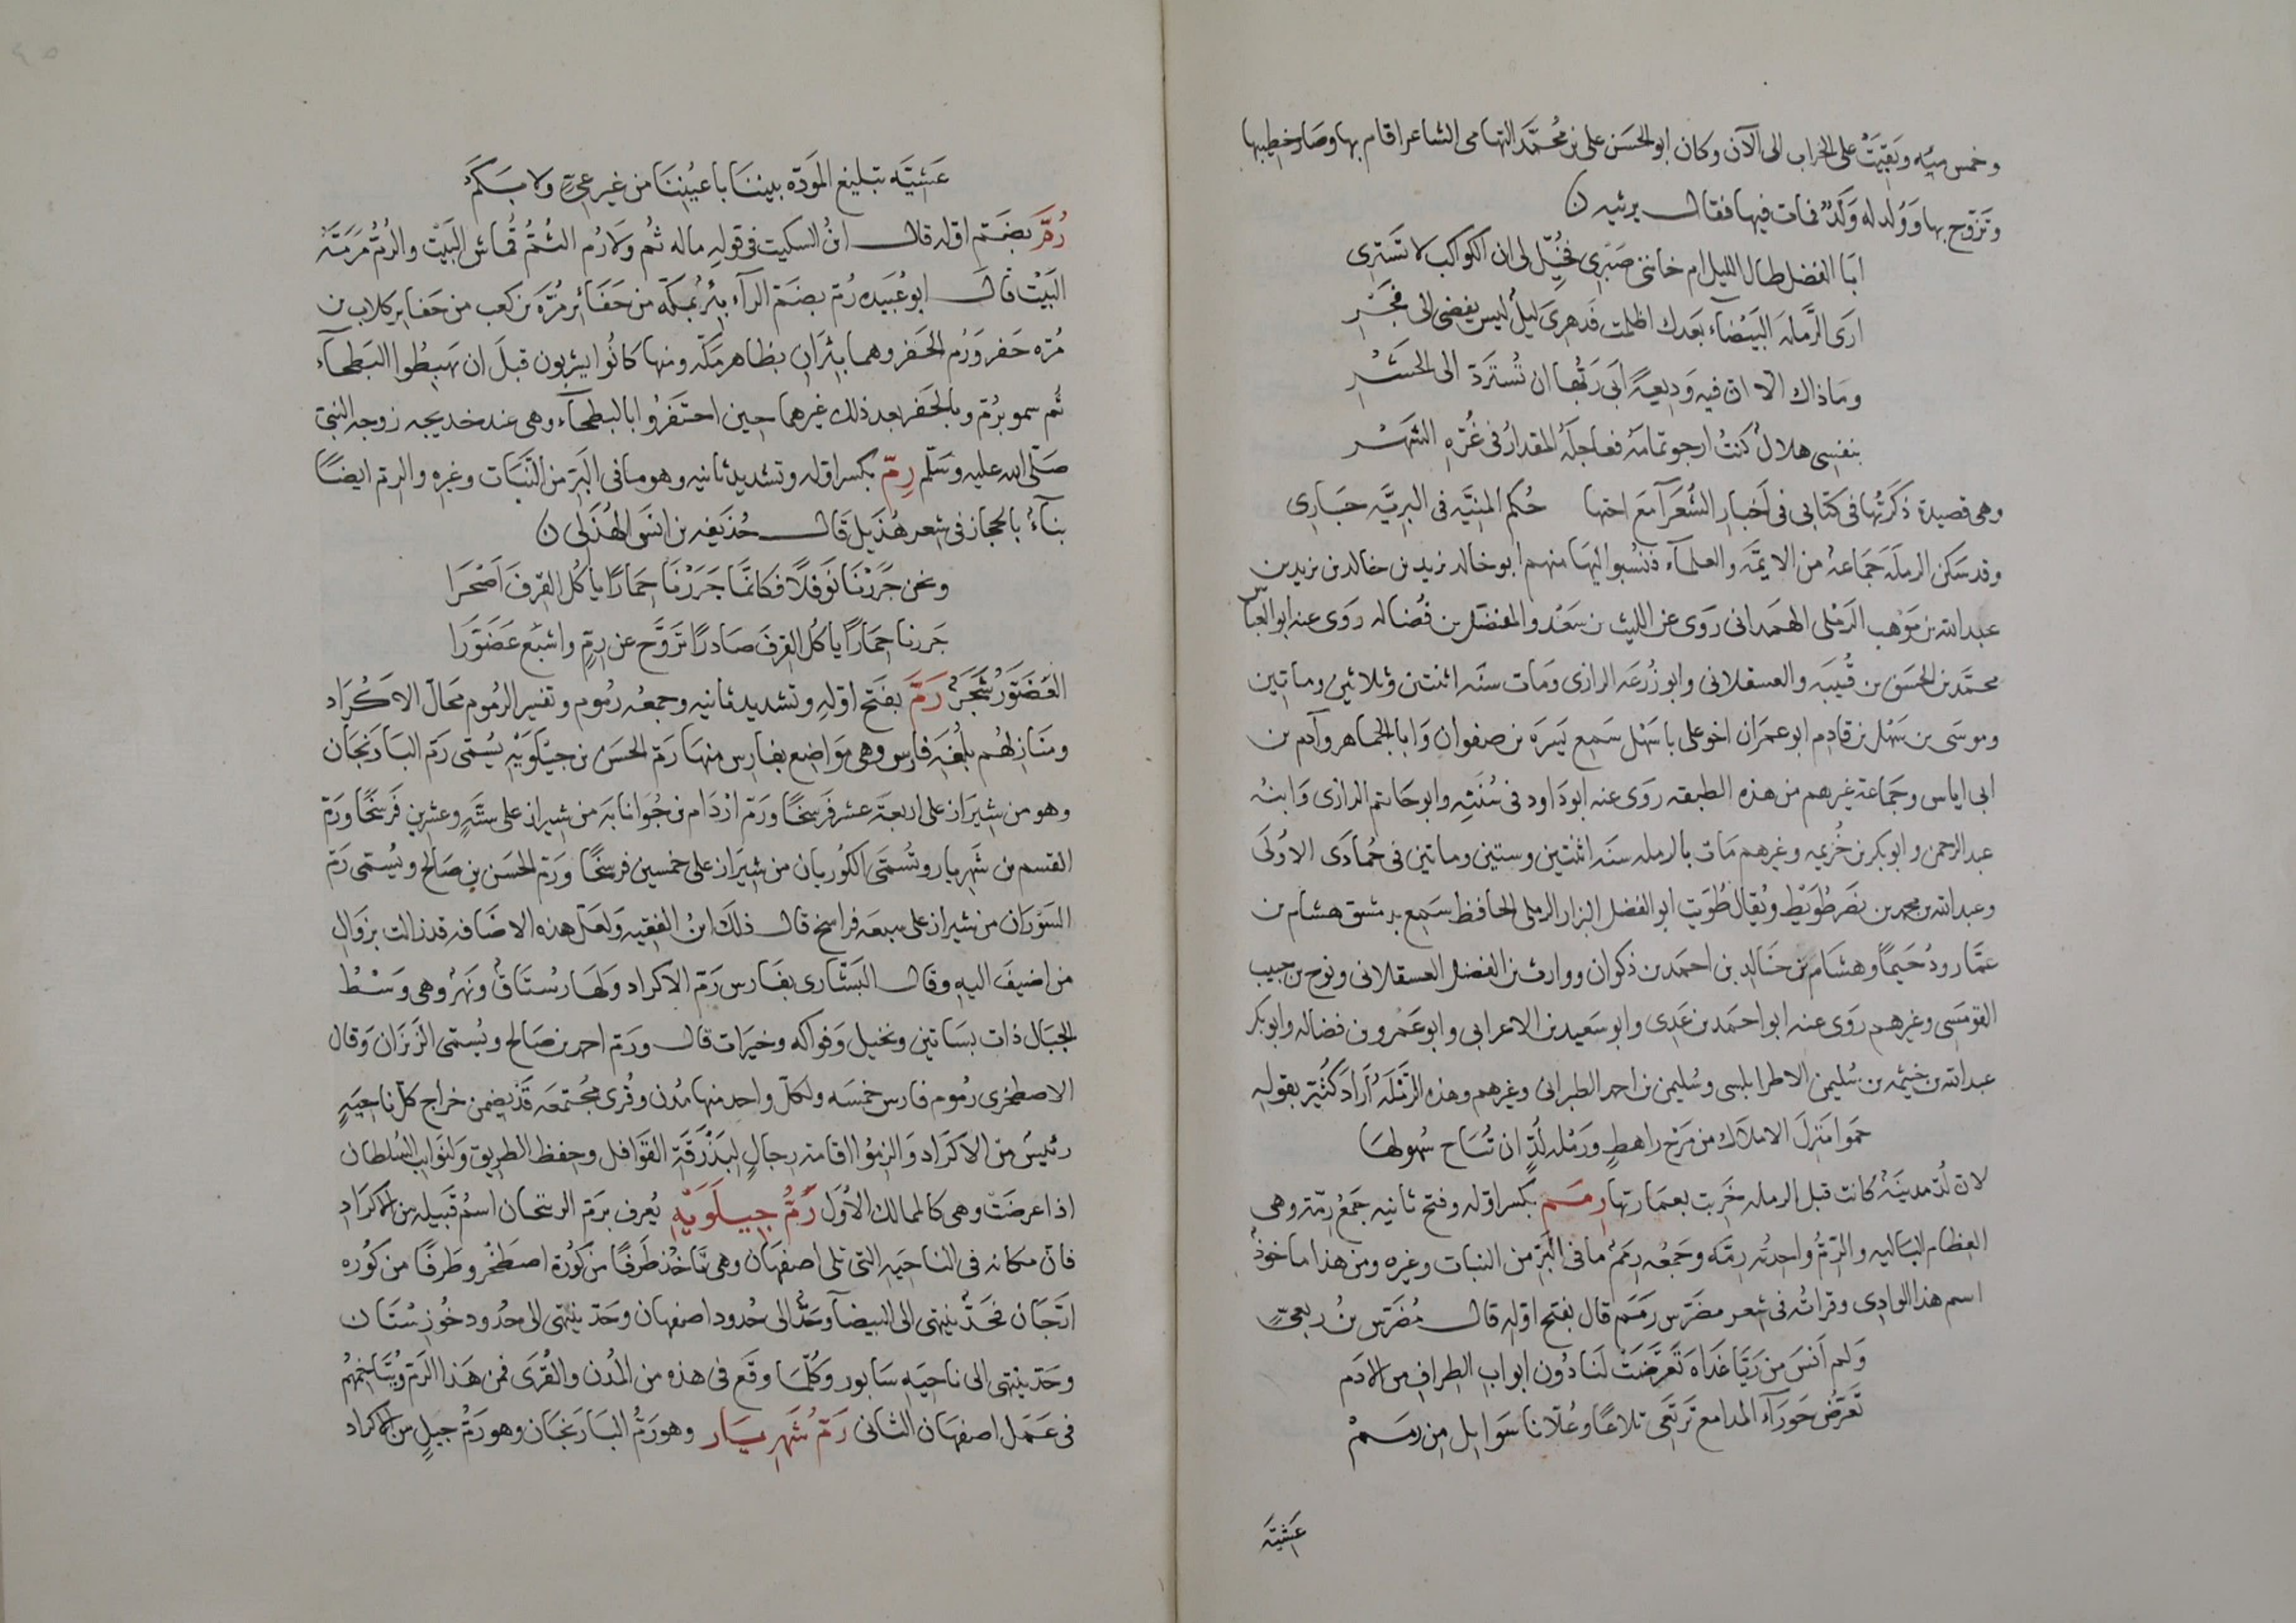 وخمس مئه وبقيت على الخراب الى الآن وكان ابو الحسن على بن محمد التهامى الشاعر اقام بها وصار خطيبها
وتزوج بها وولد له ولد فمات فيها فقال يرثيه
ابا الفضل طال الليل ام خاننى صبرى فخيل لى ان الكواكب لا تسرى
ارى الرملة البيضاء بعدك اظلمت فدهرى ليل ليس يفضى الى فجر
وما ذاك الا ان فيه وديعة ابى ربها ان تسترد الى الحشر
بنفسى هلال كنت ارجو تمامه فعاجله المقدار فى غره الشهر
وهى قصيدة ذكرتها فى كتابى فى اخبار الشعرآ مع اختها حكم المنيه فى البريه جارى
وقد سكن الرمله جماعة من الايمه والعلمآء فنسبوا اليها منهم ابو خالد يزيد بن خالد بن يزيد بن
عبد الله بن موهب الرملى الهمدانى روى عن الليث بن سعد والمفضل بن فضاله روى عنه ابو العباس
محمد بن الحسن بن قتيبه والعسقلانى وابو زرعه الرازى ومات سنه اثنتين وثلاثين وماتين
وموسى بن سهل بن قادم ابو عمران اخو على با سهل سمع يسره بن صفوان وابا الجماهر وآدم بن
ابى اياس وجماعة غيرهم من هذه الطبقه روى عنه ابو داود فى سننه وابو حاتم الرازى وابنه
عبد الرحمن وابو بكر بن خزيمه وغيرهم مات بالرمله سنه اثنتين وستين وماتين فى جمادى الاولى
وعبد الله بن محمد بن نصر طويط ويقال طويت ابو الفضل البزار الرملى الحافظ سمع بدمشق هشام بن
عمار ودحيما وهشام بن خالد بن احمد بن ذكوان ووارث بن الفضل العسقلانى ونوح بن حبيب
القومسى وغيرهم روى عنه ابو احمد بن عدى وابو سعيد بن الاعرابى وابو عمرو بن فضاله وابو بكر
عبد الله بن خيثمه بن سليمن الاطرابلسى وسليمن بن احمد الطبرانى وغيرهم وهذه الرمله اراد كثير بقوله
حموا منزل الاملاك من مرج راهط ورمله لد ان تباح سهولها
لان لد مدينة كانت قبل الرمله خربت بعمارتها رمم بكسر اوله وفتح ثانيه جمع رمة وهى
العظام الباليه والرم واحدته رمه وجمعه رمم ما فى البر من النبات وغيره ومن هذا ماخوذ
اسم هذا الوادى وقراته فى شعر مضرس رمم قال بفتح اوله قال مضرس بن ربعى
ولم انس من ريا غداه تعرضت لنا دون ابواب الطراف من الادم
تعرض حورآء المدامع ترتعى تلاعا وغلانا سوايل من رمم
عشيه
عشيه تبليغ الموده بيننا باعيننا من غير عى ولا بكم
رم بضم اوله قال ابن السكيت فى قوله ماله ثم ولا رم الثم قماش البيت والرم مرمة
البيت قال ابو عبيده رم بضم الرآء بئر بمكه من حفائر مره بن كعب من حفاير كلاب بن
مره حفر ورم الحفر وهما بئران بظاهر مكه ومنها كانوا يشربون قبل ان يهبطوا البطحآء
ثم سمو برم وبالحفر بعد ذلك غيرهما حين احتفروا بالبطحآء وهى عند خديجه زوجه النبى
صلى الله عليه وسلم رم بكسر اوله وتشديد ثانيه وهو ما فى البر من النبات وغيره والرم ايضا
بناء بالحجاز فى شعر هذيل قال حذيفه بن انس الهذلى
ونحن جررنا نوفلا فكانما جررنا حمارا ياكل القرف اصحرا
جررنا حمارا ياكل القرف صادرا تروح عن رم واشبع غضورا
الغضور شجر رم بفتح اوله وتشديد ثانيه وجمعه رموم وتفسير الرموم محال الاكراد
ومنازلهم بلغه فارس وهى مواضع بفارس منها رم الحسن بن جيلويه يسمى رم البازنجان
وهو من شيراز على اربعة عشر فرسخا ورم اردام بن جوانابه من شيراز على ستة وعشرين فرسخا ورم
القسم بن شهريار وتسمى الكوريان من شيراز على خمسين فرسخا ورم الحسن بن صالح ويسمى رم
السوران من شيراز على سبعه فراسخ قال ذلك ابن الفقيه ولعل هذه الاضافه قد زالت بزوال
من اضيف اليه وقال البشارى بفارس رم الاكراد ولها رستاق ونهر وهى وسط
الجبال ذات بساتين ونخيل وفواكه وخيرات قال ورم احمد بن صالح ويسمى الزيزان وقال
الاصطخرى رموم فارس خمسه ولكل واحد منها مدن وقرى مجتمعه قد يضمن خراج كل ناحيه
رئيس من الاكراد والزموا اقامة رجال لبذرقة القوافل وحفظ الطريق ولنوايب السلطان
اذا عرضت وهى كالممالك الاول رم جيلويه يعرف برم الرنيجان اسم قبيله من الاكراد
فان مكانه فى الناحيه التى تلى اصفهان وهى تاخذ طرفا من كورة اصطخر وطرفا من كوره
ارجان فحد ينتهى الى البيضآ وحد الى حدود اصفهان وحد ينتهى الى حدود خوزستان
وحد ينتهى الى ناحيه سابور وكلما وقع فى هذه من المدن والقرى فمن هذا الرم ويتاخمهم
فى عمل اصفهان الثانى رم شهريار وهو رم البازنجان وهو رم جيل من الاكراد